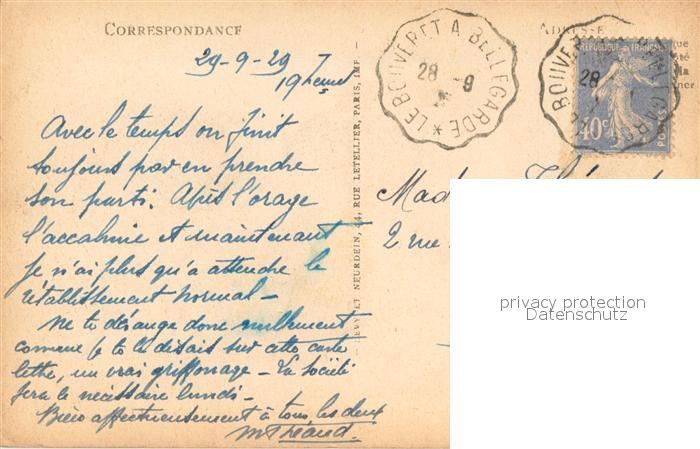 CORRESPONDANCE
29-9-29
19 heures
Avec le temps on finit
toujours par en prendre
son parti. Après l'orage
l'accalmie et maintenant
je n'ai plus qu'à attendre le
rétablissement normal -
Ne te dérange donc nullement
comme je te le disais sur cette carte
lettre, un vrai griffonage - La Société
fera le nécessaire lundi -
Bien affectueusement à tous les deux
LEVY ET NEURDEIN, 44, RUE LETELLIER, PARIS, IMP.
LE BOUVERET A BELLEGARDE *
28 - 9
ADRESSE
REPUBLIQUE FRANÇAISE
40c
POSTES
28
Mad
2 rue
privacy protection
Datenschutz